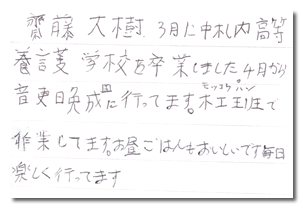 齋藤 大樹 3月に中札内高等
養護学校を卒業しました。4月から
音更晩成園に行ってます。木工班で
モッコウ ハン
作業してます。お昼ごはんもおいしいです毎日
楽しく行ってます